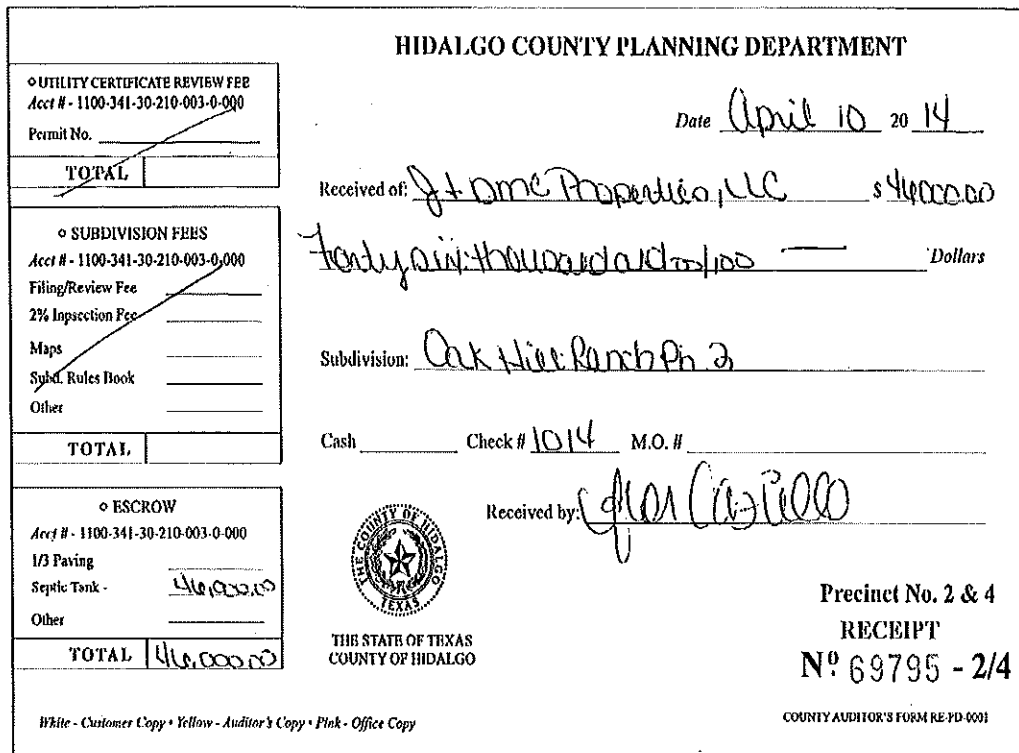 HIDALGO COUNTY PLANNING DEPARTMENT
◊ UTILITY CERTIFICATE REVIEW FEE
Acct # - 1100-341-30-210-003-0-000
Permit No.
TOTAL
◊ SUBDIVISION FEES
Acct # - 1100-341-30-210-003-0-000
Filing/Review Fee
2% Inpsection Fee
Maps
Subd. Rules Book
Other
TOTAL
◊ ESCROW
Acct # - 1100-341-30-210-003-0-000
1/3 Paving
Septic Tank - 46,000.00
Other
TOTAL 46,000.00
Date April 10 20 14
Received of: J + DMC Properties, LLC $ 46000.00
Forty six thousand and 00/100 — Dollars
Subdivision: Oak Hill Ranch Ph. 2
Cash Check # 1014 M.O. #
Received by: Castillo
THE COUNTY OF HIDALGO
TEXAS
THE STATE OF TEXAS
COUNTY OF HIDALGO
Precinct No. 2 & 4
RECEIPT
Nº 69795 - 2/4
White - Customer Copy • Yellow - Auditor's Copy • Pink - Office Copy
COUNTY AUDITOR'S FORM RE-PD-0001